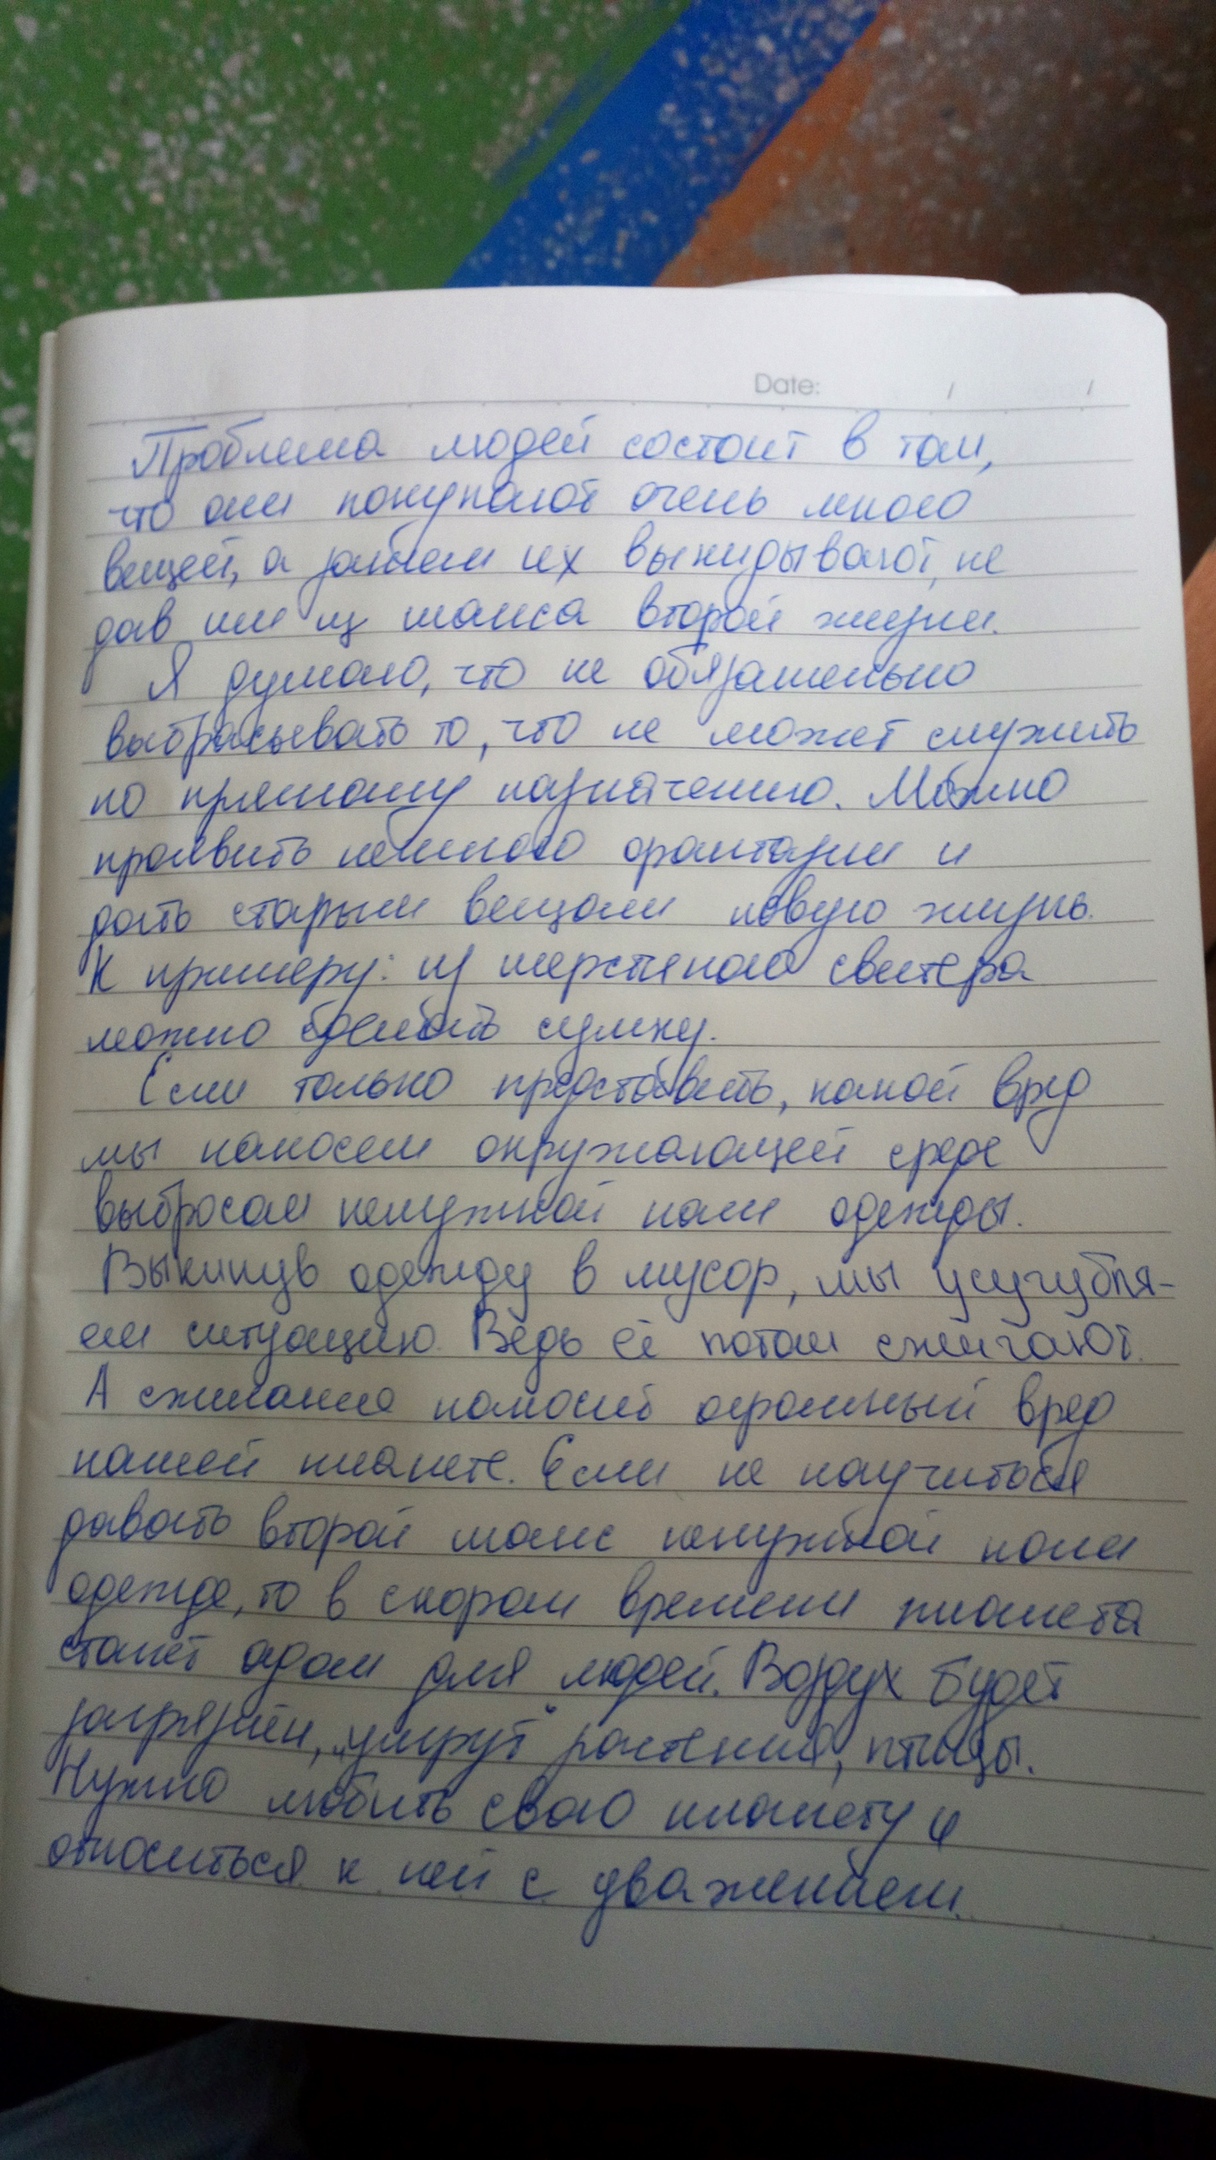 Date: / /
Проблема людей состоит в том,
что они покупают очень много
вещей, а затем их выкидывают, не
дав им шанса второй жизни.
Я думаю, что не обязательно
выбрасывать то, что не может служить
по прямому назначению. Можно
проявить немного фантазии и
дать старым вещам новую жизнь.
К примеру: из шерстяного свитера
можно сделать сумку.
Если только представить, какой вред
мы наносем окружающей среде
выбросам ненужной нам одежды.
Выкинув одежду в мусор, мы усугубля-
ем ситуацию. Ведь её потом сжигают.
А сжигание наносит огромный вред
нашей планете. Если не научиться
давать второй шанс ненужной нам
одежде, то в скором времени планета
станет адом для людей. Воздух будет
загрязнён, умрут растения, птицы.
Нужно любить свою планету и
относиться к ней с уважением.